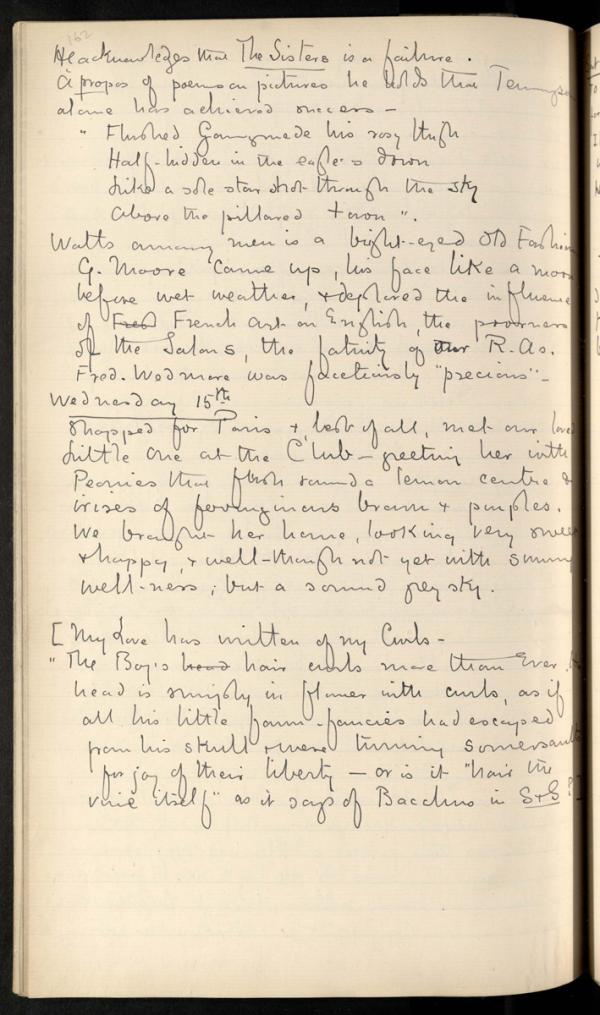 162
He acknowledges that The Sisters is a failure.
À propos of poems on pictures he holds that Tennyson
alone has achieved success –
" Flushed Ganymede his rosy thigh
Half-hidden in the eagle's down
Like a sole star shot through the sky
Above the pillared town ".
Watts among men is a bight-eyed Old Fashion
G. Moore came up, his face like a moon
before wet weather, & deplored the influence
of Fred French art on English, the
of the Salons, the fatuity of our R.As.
Fred. Wedmore was facetiously "precious" –
Wednesday 15th
Shopped for Paris &, best of all, met our love
Little One at the Club – greeting her with
Peonies that flush round a lemon centre &
irises of ferruginous brown & purples.
We brought her home, looking very sweet
& happy, & well – though not yet with sunny
well-ness; but a sound grey sky.
[ My Love has written of my Curls –
" The Boy's head hair curls more than ever.
head is simply in flower with curls, as if
all his little faun-fancies had escaped
from his skull & were turning somersaults
for joy of their liberty – or is it "hair the
vine itself" as it says of Bacchus in S & S ?]